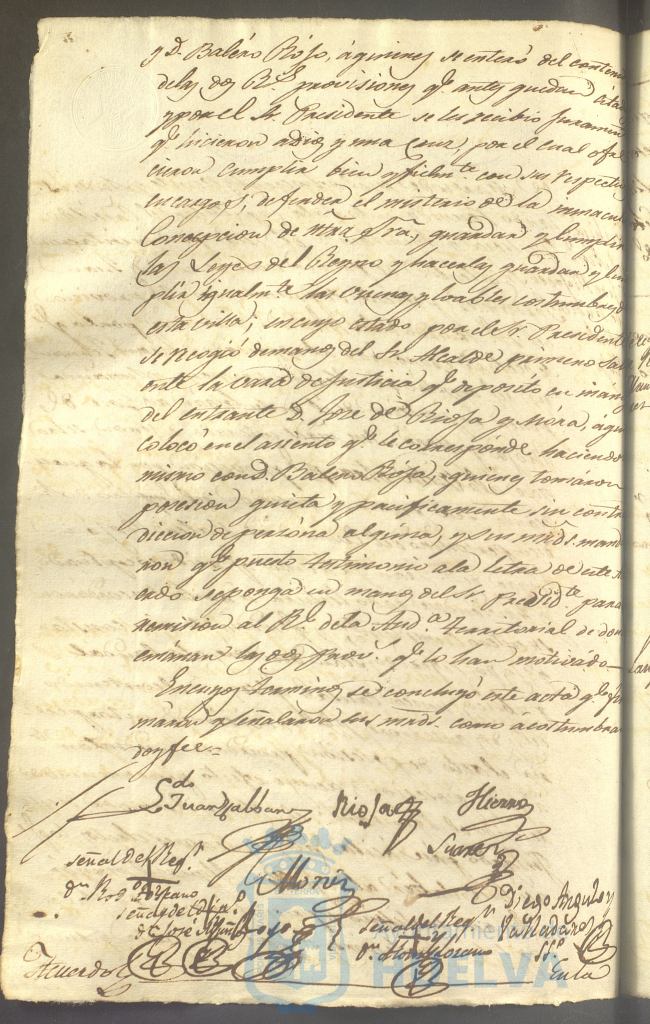 y D. Balero Riofo, á quienes se enteró del conten
de las dos Rs. provisiones qe. antes quedan citad
y por el Sr. Presidente se les recibio juramen
qe. hicieron a Dios y una Cruz, por el cual ofre
cieron cumplir bien y fielmte. con sus respectiv
encargos; defender el misterio de la inmacu
Concepcion de Mâa. Sra., guardar y cumplir
las Leyes del Reyno y hacerlas guardar y cum
plir igualmte. las buenas y loables costumbres d
esta villa; en cuyo estado por el Sr. President
se recogió de mano del Sr. Alcalde primero sal
ente la vara de justicia qe. depositó en man
del entrante D. Jose de Riofa y Mora, a qu
colocó en el asiento qe. le corresponde, haciendo
mismo con D. Balero Riofo, quienes tomáron
posesion quieta y pacificamente sin contra
diccion de persona alguna, y sus mrds. manda
ron qe. puesto testimonio a la letra de este A
cuerdo se ponga en manos del Sr. Presidte. para
remision al Rl. de la Auda. territorial de don
emánan las dos Provs. qe. lo han motivado
En cuyos terminos se concluyó este acta qe. fir
máron y señaláron sus mrds. como acostumbra
doy fee=
Ldo. Juan Rabban
Riofa
Hierro
Suarez
señal del Regr.
Dn. Rodo. Lozano
Moriz
señal del Dipo.
de José
Rojo
señal del Regr.
Dn. Lozano
Diego Angulo y
Valladares
SSo.
Acuerdo
En la
Ayuntamiento
HUELVA